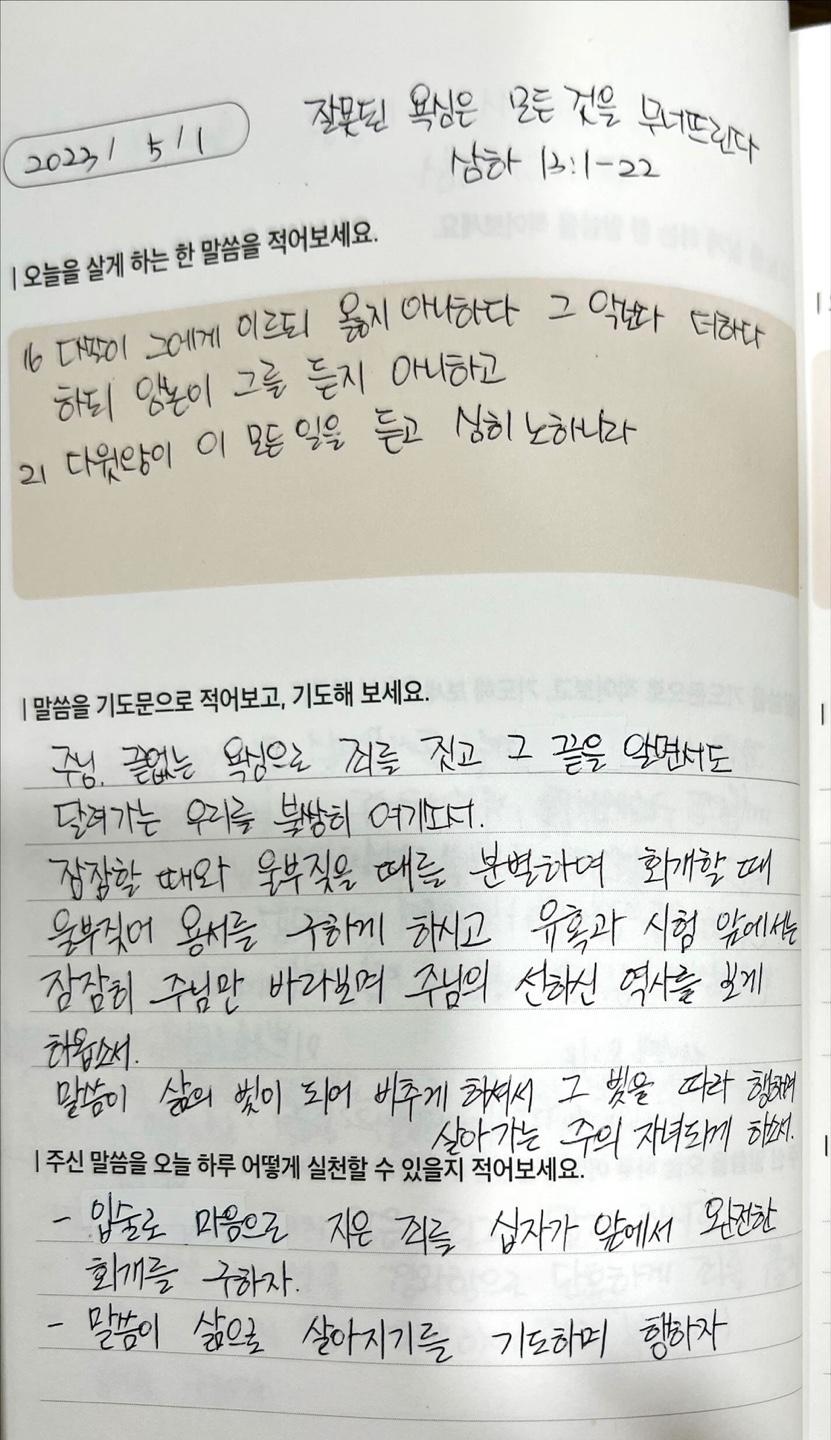 2023 / 5 / 1
잘못된 욕심은 모든 것을 무너뜨린다
삼하 13:1-22
| 오늘을 살게 하는 한 말씀을 적어보세요.
16 다말이 그에게 이르되 옳지 아니하다 그 악보다 더하다
하되 암논이 그를 듣지 아니하고
21 다윗왕이 이 모든 일을 듣고 심히 노하니라
| 말씀을 기도문으로 적어보고, 기도해 보세요.
주님. 끝없는 욕심으로 죄를 짓고 그 끝을 알면서도
달려가는 우리를 불쌍히 여겨
잠잠할 때와 울부짖을 때를 분별하며 회개할 때
울부짖어 용서를 구하게 하시고 유혹과 시험 앞에서는
잠잠히 주님만 바라보며 주님의 선하신 역사를 보게
하옵소서.
말씀이 삶의 빛이 되어 비추게 하셔서 그 빛을 따라 행하며
살아가는 주의 자녀되게 하소서.
| 주신 말씀을 오늘 하루 어떻게 실천할 수 있을지 적어보세요.
- 입술로 마음으로 지은 죄를 십자가 앞에서 완전한
회개를 구하자.
- 말씀이 삶으로 살아지기를 기도하며 행하자